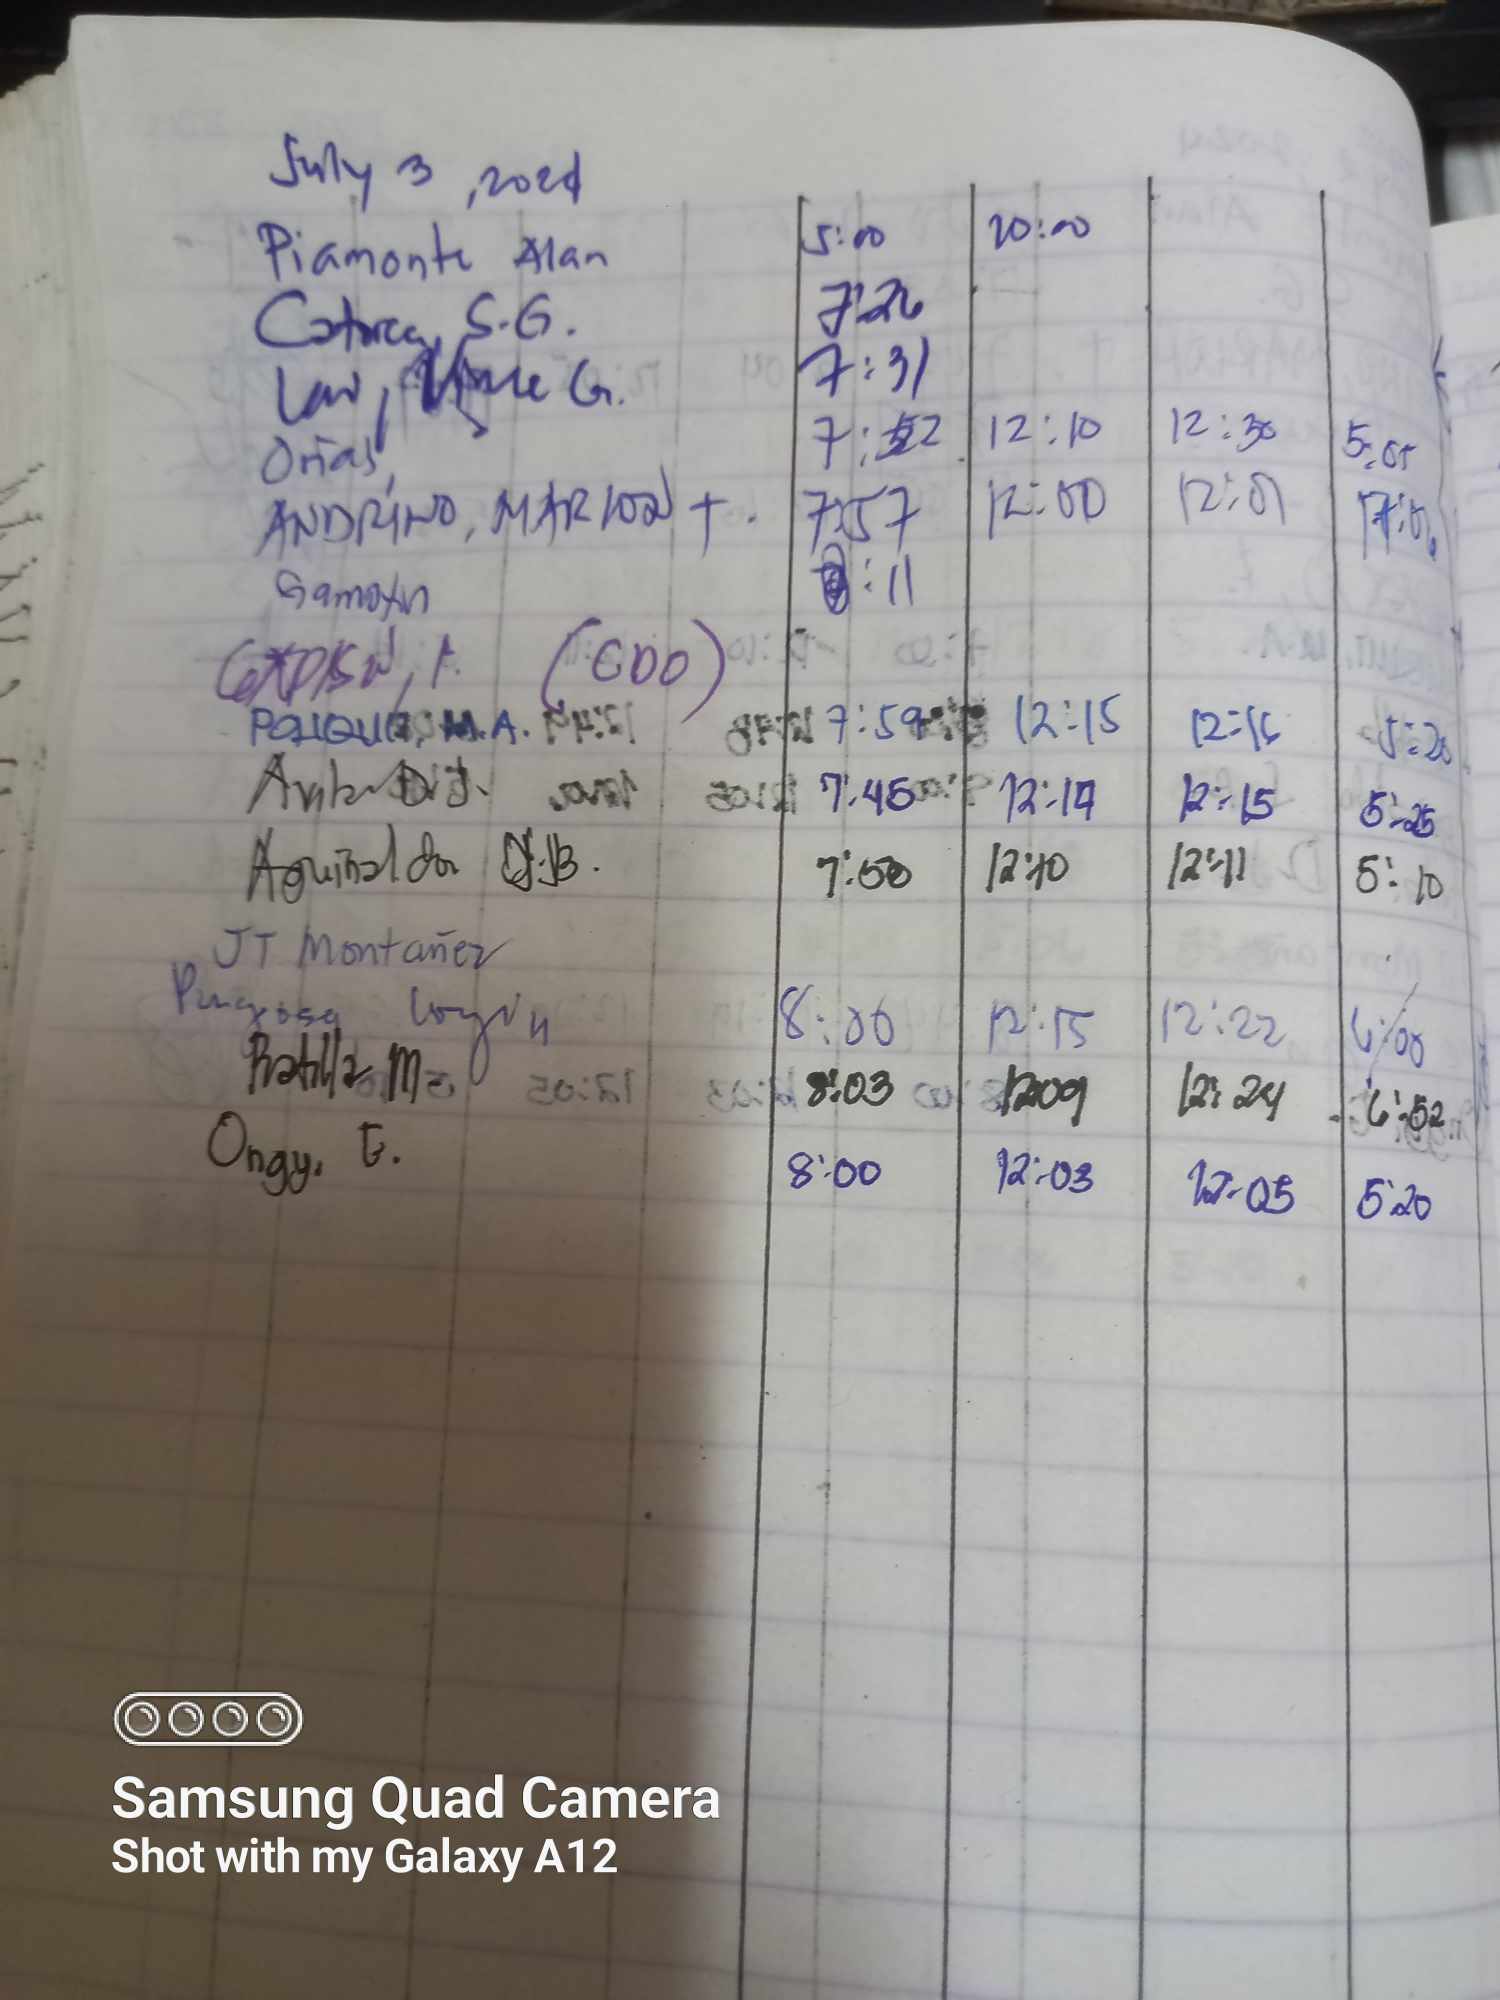 July 3, 2024
Piamonte Alan 5:00 20:00
S.G. 7:26
Law, G. 7:31
Orias, 7:52 12:10 12:30 5:05
ANDRINO, MARION T. 7:57 12:00 12:01 17:01
:11
(CDO)
M.A. 7:59 12:15 12:16 5:20
D.J. 7:45 12:14 12:15 5:25
Aguinaldo J.B. 7:50 12:10 12:11 5:10
JT Montañez
8:06 12:15 12:22 6:00
Ratilla M 8:03 1209 12:24 6:52
Ongy, E. 8:00 12:03 12:05 5:20
Samsung Quad Camera
Shot with my Galaxy A12